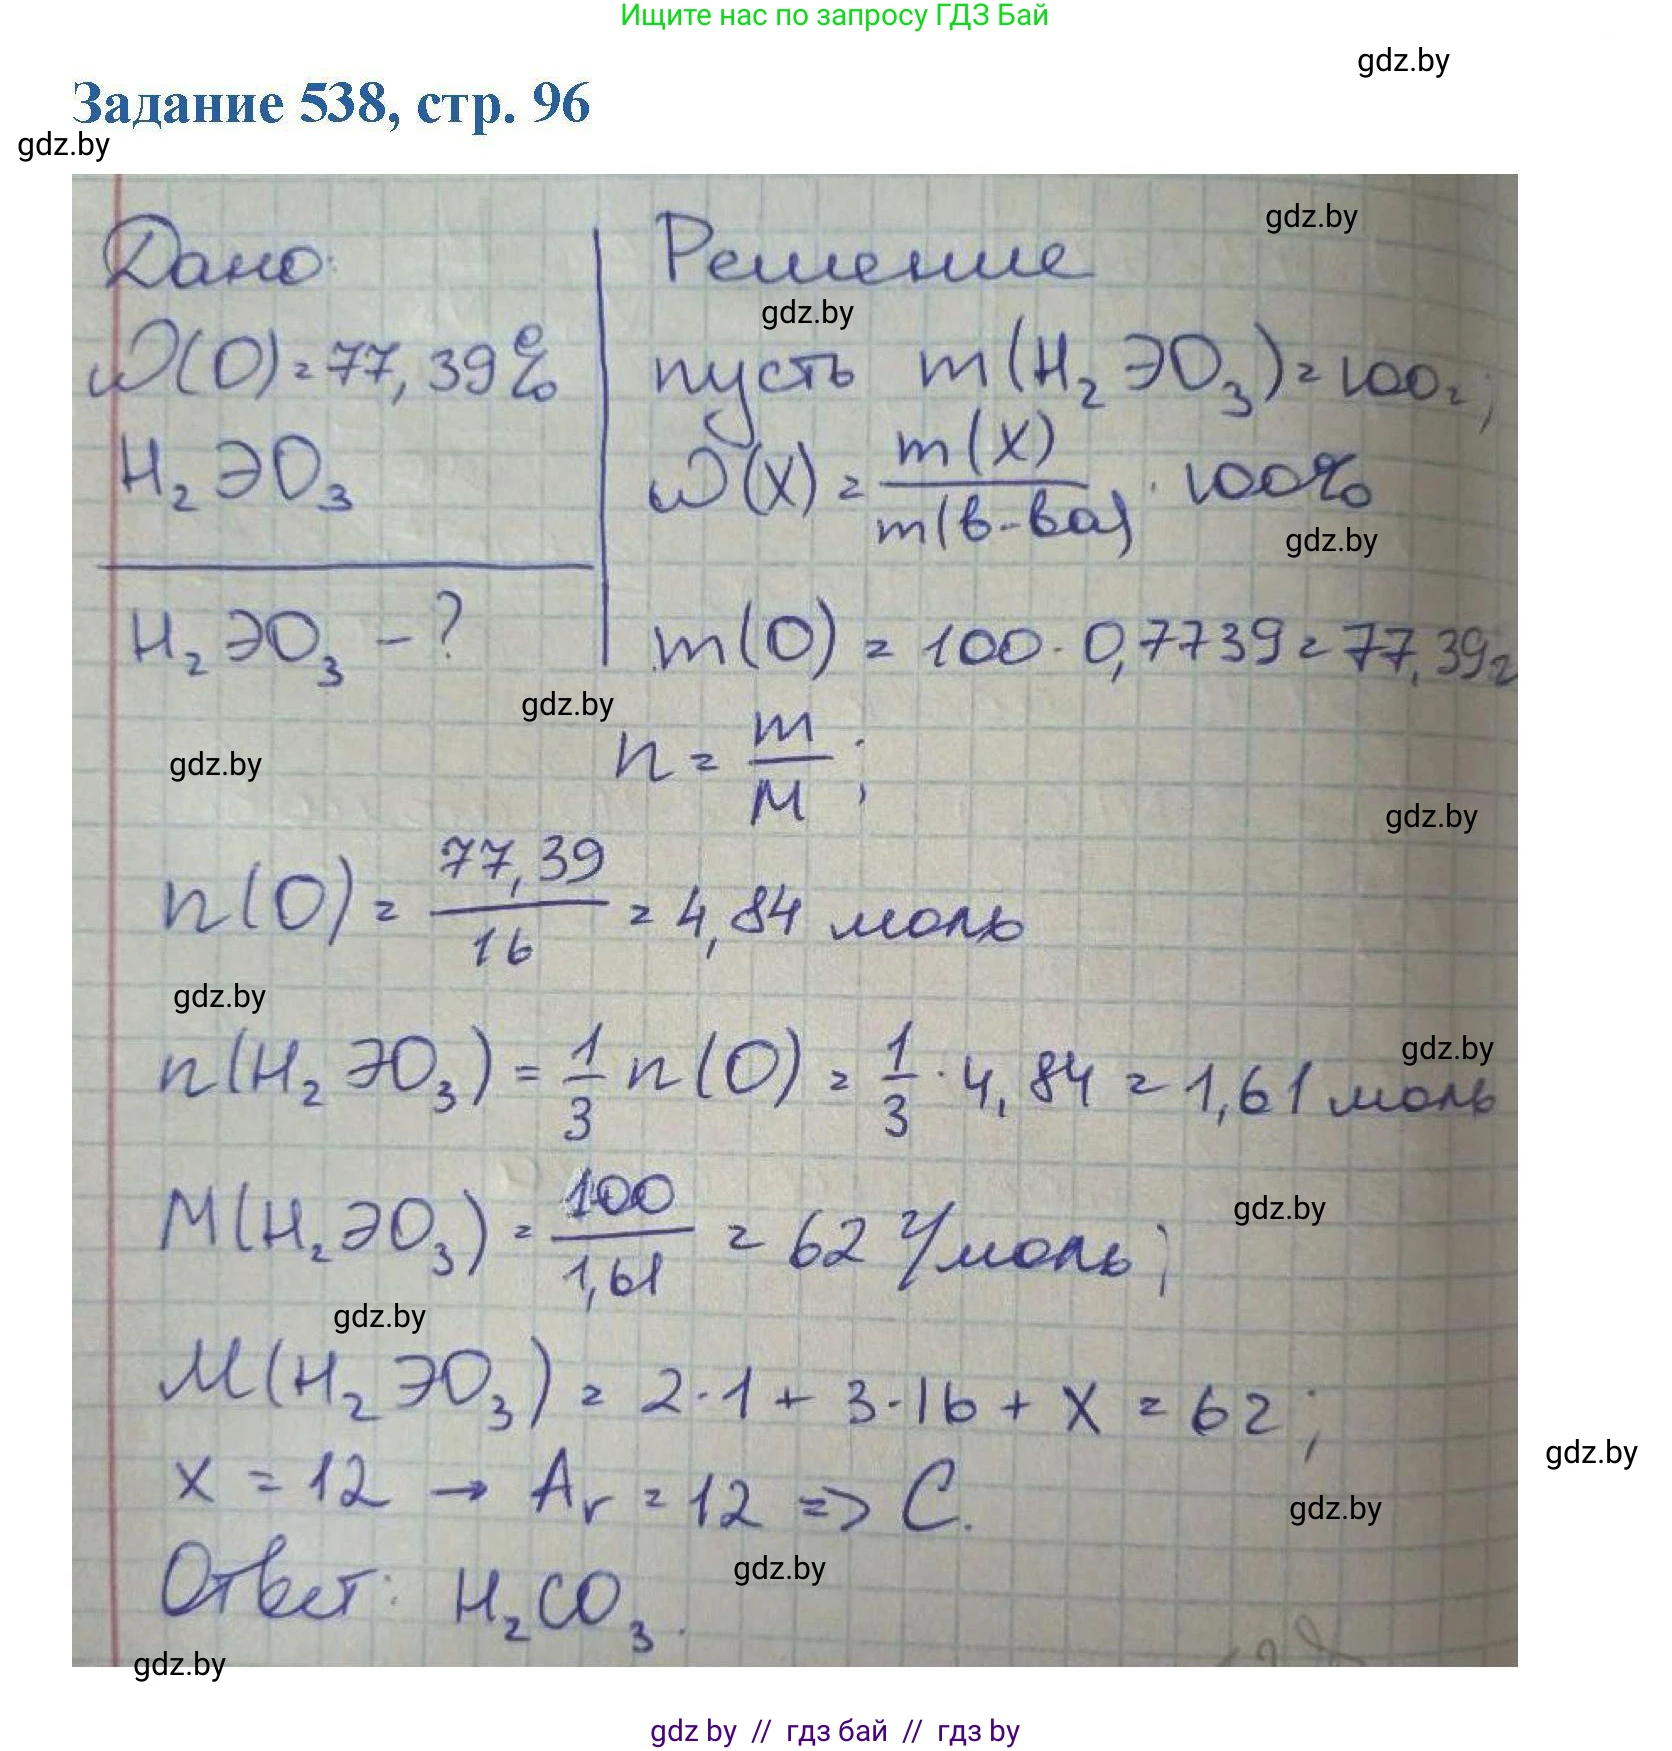 Ищите нас по запросу ГДЗ Бай
gdz.by
Задание 538, стр. 96
gdz.by
gdz.by
Дано: Решение
gdz.by
ω(O) = 77,39% пусть m(H₂ЭO₃) = 100г;
H₂ЭO₃ ω(X) = m(X) / m(в-ва) · 100%
gdz.by
H₂ЭO₃ - ? m(O) = 100 · 0,7739 = 77,39г
gdz.by
n = m / M ;
gdz.by
gdz.by
n(O) = 77,39 / 16 = 4,84 моль
gdz.by
gdz.by
n(H₂ЭO₃) = 1/3 n(O) = 1/3 · 4,84 = 1,61 моль
gdz.by
M(H₂ЭO₃) = 100 / 1,61 = 62 г/моль;
gdz.by
M(H₂ЭO₃) = 2·1 + 3·16 + x = 62;
gdz.by
x = 12 → Ar = 12 => C.
gdz.by
gdz.by
Ответ: H₂CO₃.
gdz.by
gdz by // гдз бай // гдз by